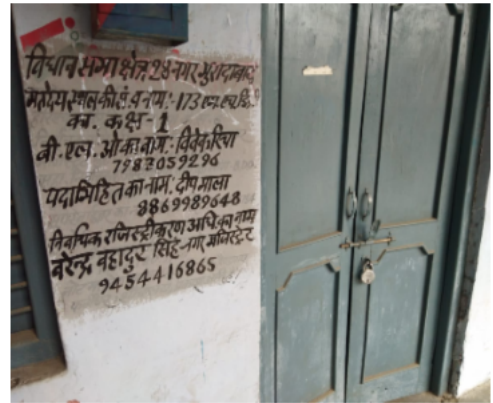 विधान सभा क्षेत्र 28 नगर मुरादाबाद
मतदेय स्थल की सं. व नाम :- 173 एच. एच. डिग्री
का. कक्ष - 1
बी. एल. ओ का नाम :- विवेक रिचा
7983059296
पदाभिहित का नाम : दीपमाला
8869989648
निर्वाचक रजिस्ट्रीकरण अधि. का नाम
वरेन्द्र बहादुर सिंह नगर मजिस्ट्रेट
9454416865